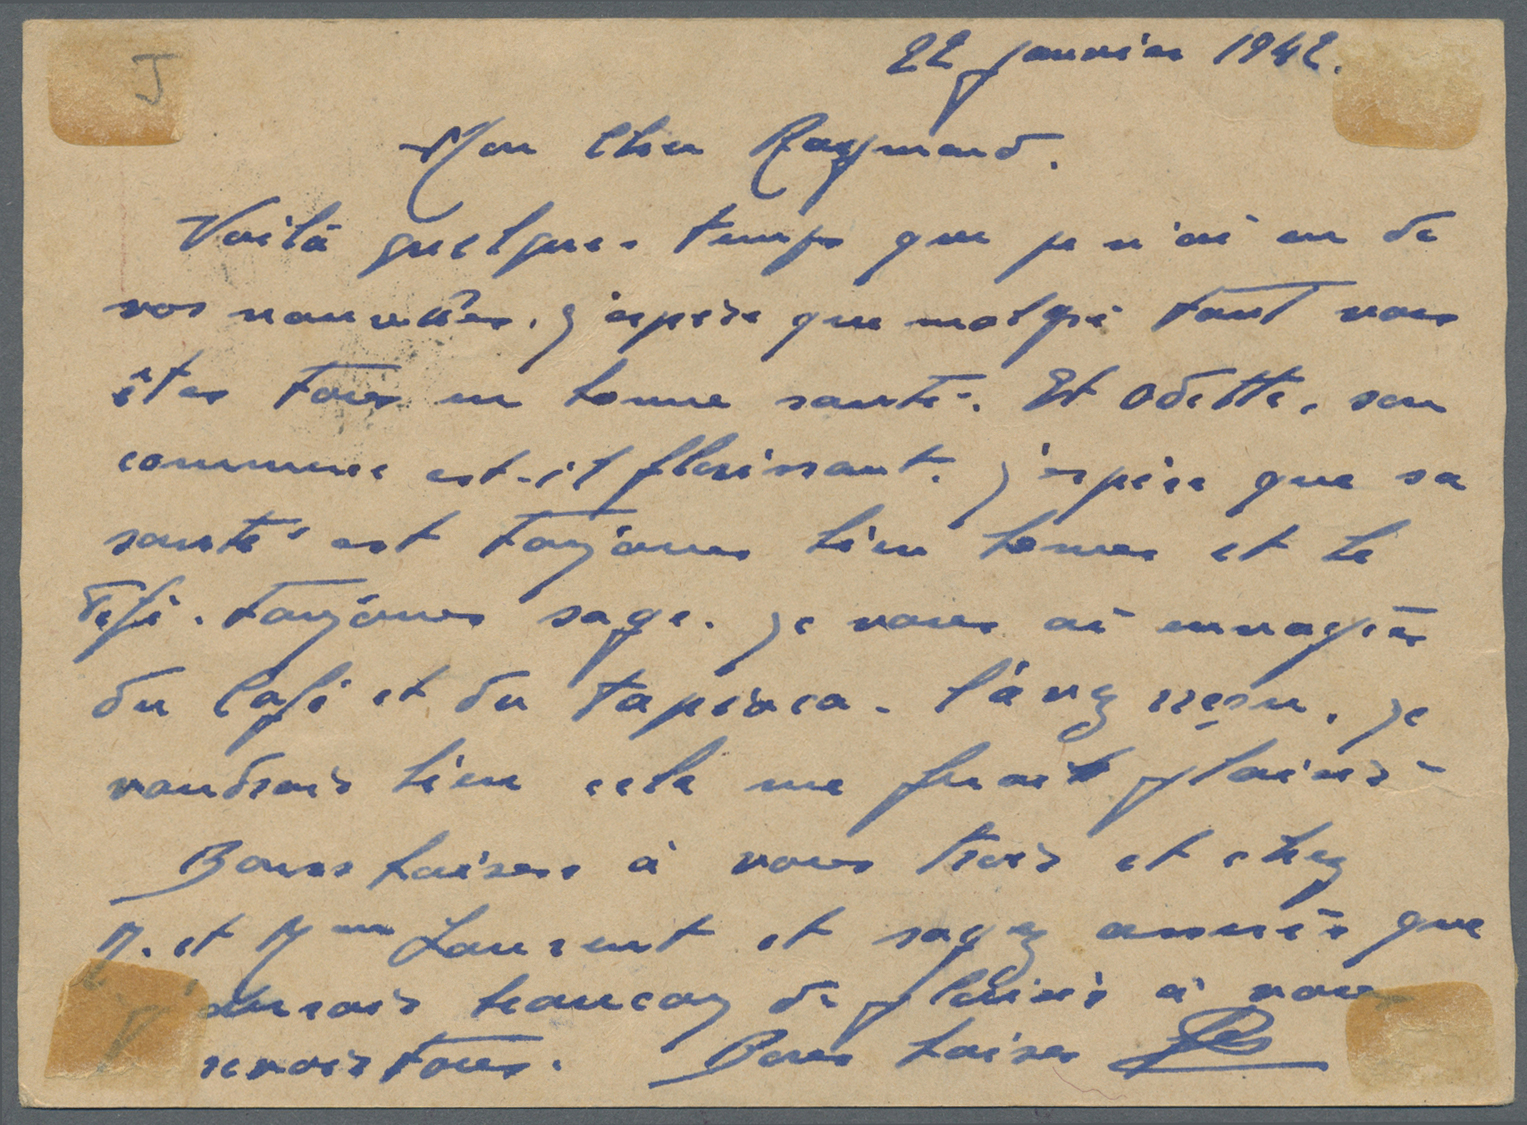 J
22 janvier 1942.
Mon Cher Raymond.
Voilà quelques temps que je n'ai eu de
vos nouvelles. J'espère que malgré tout vous
êtes tous en bonne santé. Et Odette, son
commerce est-il florissant. J'espère que sa
santé est toujours bien bonne et le
toujours sage. Je vous ai envoyés
du Café et du tapioca. l'avez reçu. Je
voudrais bien cela me ferait plaisir
Bons baisers à vous trois et chez
M. et Mme Laurent et soyez assurés que
j'aurais beaucoup de plaisir à vous
revoir tous. Bons baisers